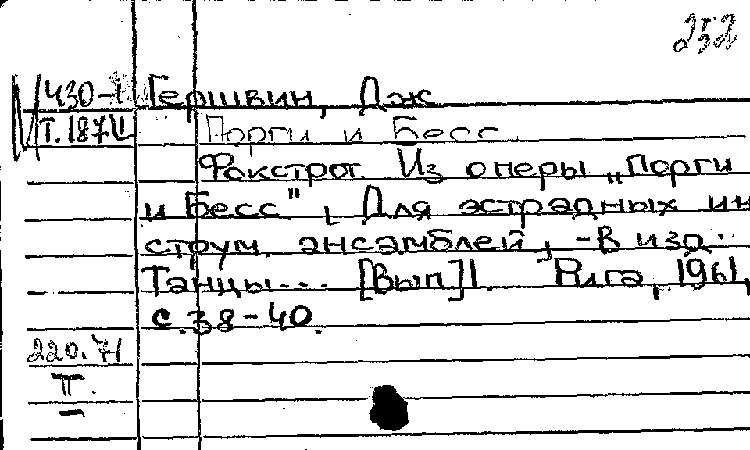 252
430-1 Гершвин, Дж
Т.187 Порги и Бесс.
Факстрот. Из оперы „Порги
и Бесс", Для эстрадных ин
струм. ансамблей, -В изд.:
Танцы... [Вып]1. Рига, 1961,
с.38-40.
220.71
П.